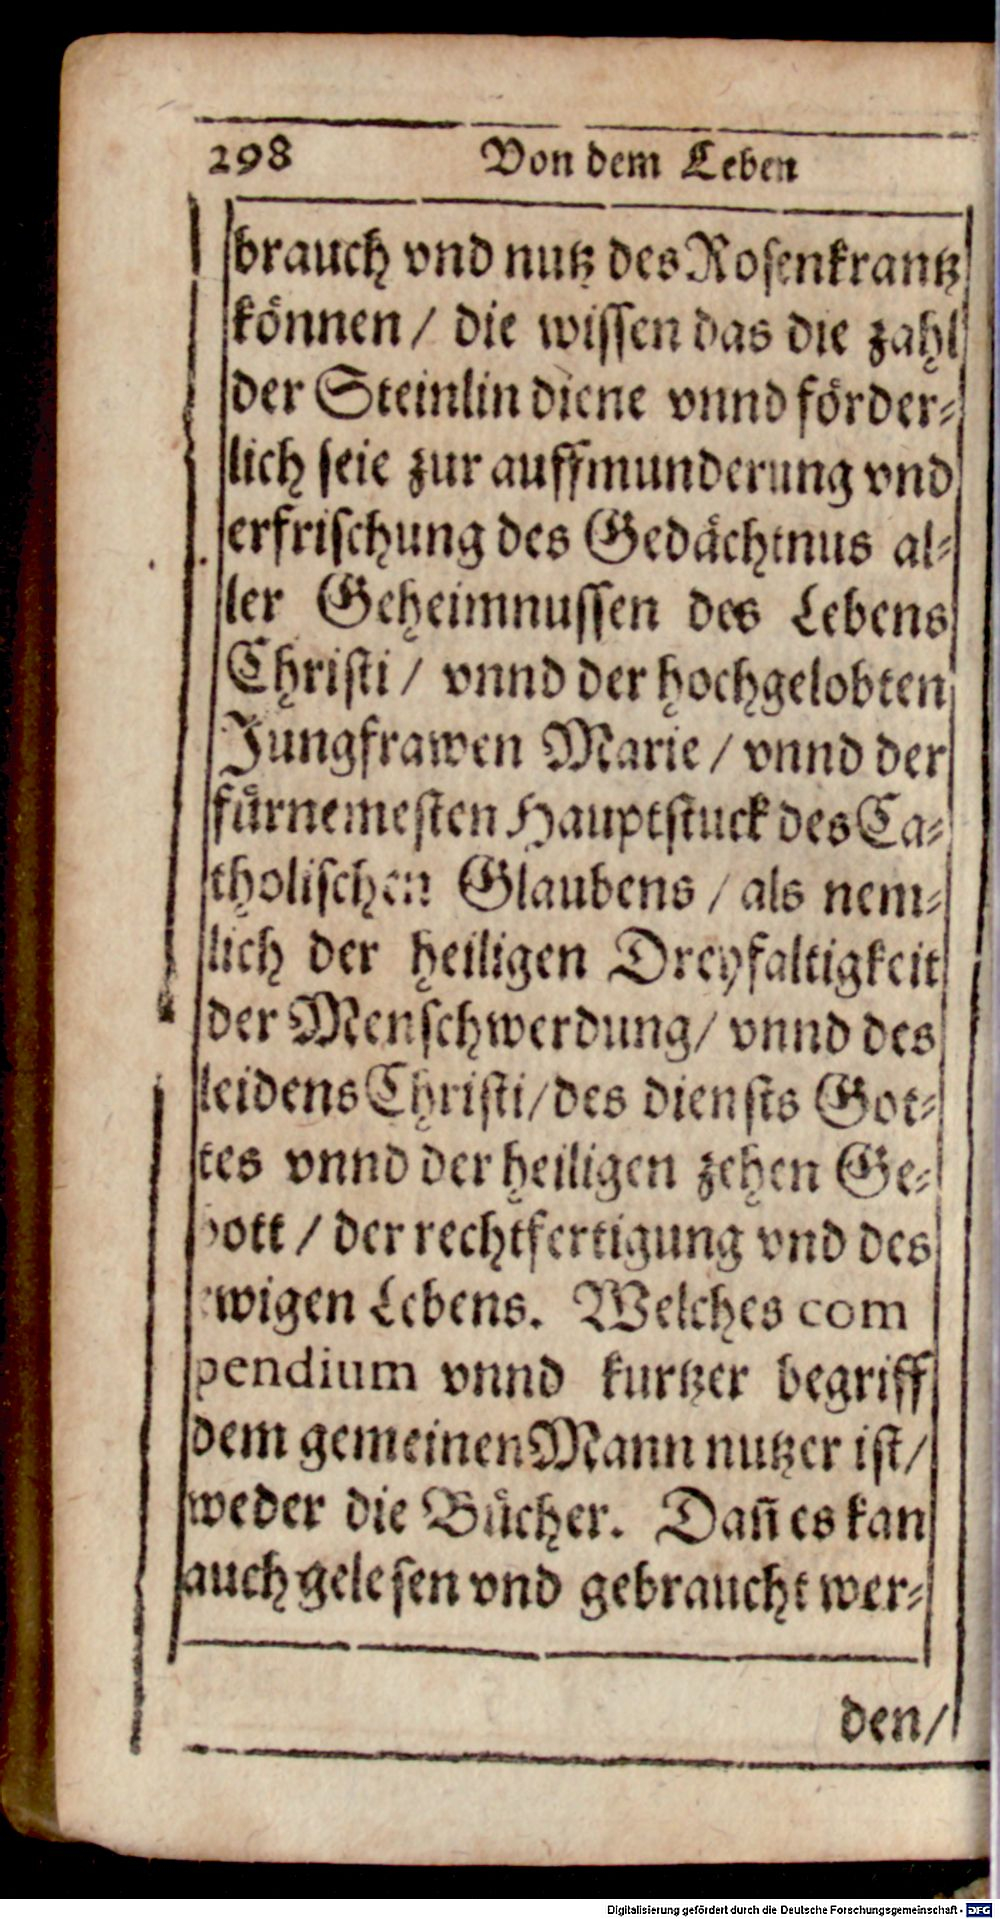 298 Von dem Leben
brauch vnd nutz des Rosenkrantz
können / die wissen das die zahl
der Steinlin diene vnnd förder-
lich seie zur auffmunderung vnd
erfrischung des Gedächtnus al-
ler Geheimnussen des Lebens
Christi / vnnd der hochgelobten
Jungfrawen Marie / vnnd der
fürnemesten Hauptstuck des Ca-
tholischen Glaubens / als nem-
lich der heiligen Dreyfaltigkeit
der Menschwerdung / vnnd des
leidens Christi / des diensts Got-
tes vnnd der heiligen zehen Ge-
bott / der rechtfertigung vnd des
ewigen Lebens. Welches com
pendium vnnd kurtzer begriff
dem gemeinen Mann nutzer ist /
weder die Bücher. Dañ es kan
auch gelesen vnd gebraucht wer-
den /
Digitalisierung gefördert durch die Deutsche Forschungsgemeinschaft - DFG